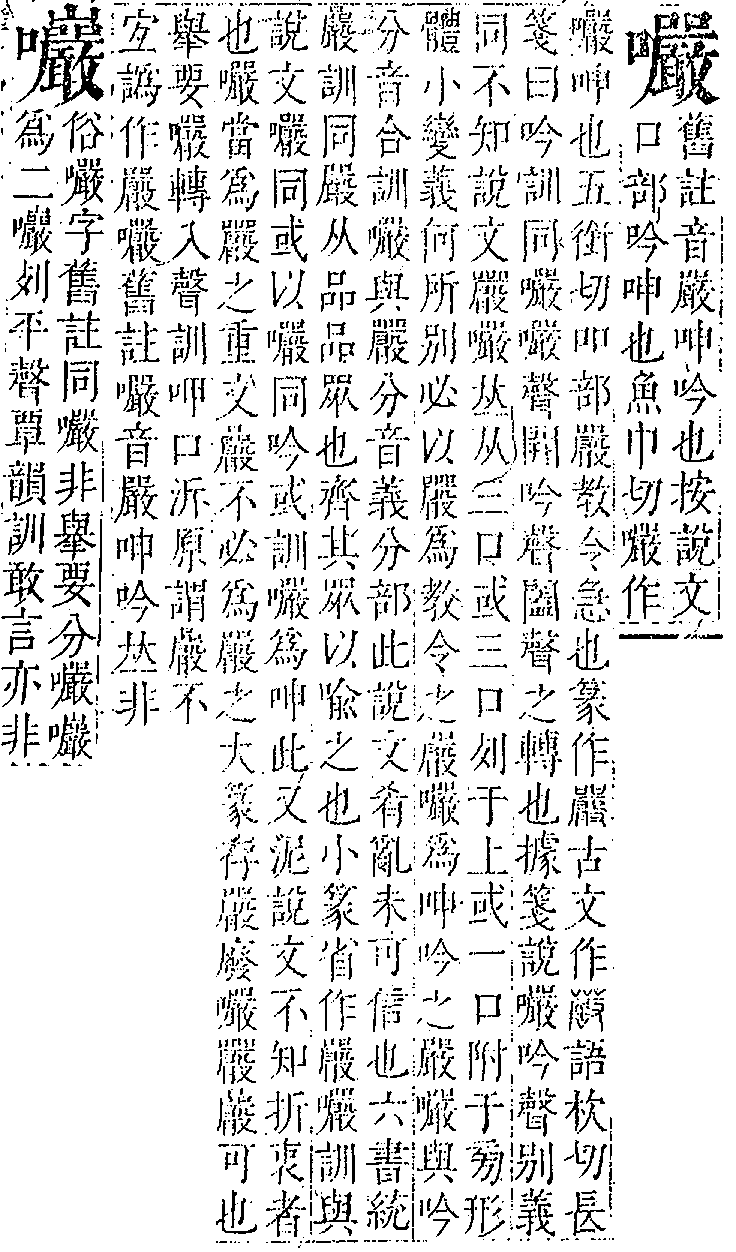 㘙舊註音嚴呻吟也按說文
口部吟呻也魚巾切㘙作
㘙呻也五銜切吅部嚴教令急也篆作嚴古文作𠪚語杴切長
箋曰吟訓同㘙㘙聲闢吟聲闔聲之轉也據箋說㘙吟聲別義
同不知說文嚴㘙𠀤从三口或三口列于上或一口附于㫄形
體小變義何所別必以嚴爲教令之嚴㘙爲呻吟之嚴㘙與吟
分音合訓㘙與嚴分音義分部此說文肴亂未可信也六書統
嚴訓同嚴从品品眾也齊其眾以喻之也小篆省作嚴㘙訓與
說文㘙同或以㘙同吟或訓㘙爲呻此又泥說文不知折衷者
也㘙當爲嚴之重文嚴不必爲嚴之大篆存嚴廢㘙嚴嚴可也
舉要㘙轉入聲訓呷口泝原謂嚴不
宐譌作嚴㘙舊註㘙音嚴呻吟𠀤非
㘙俗㘙字舊註同㘙非舉要分㘙㘙
爲二㘙列平聲覃韻訓敢言亦非